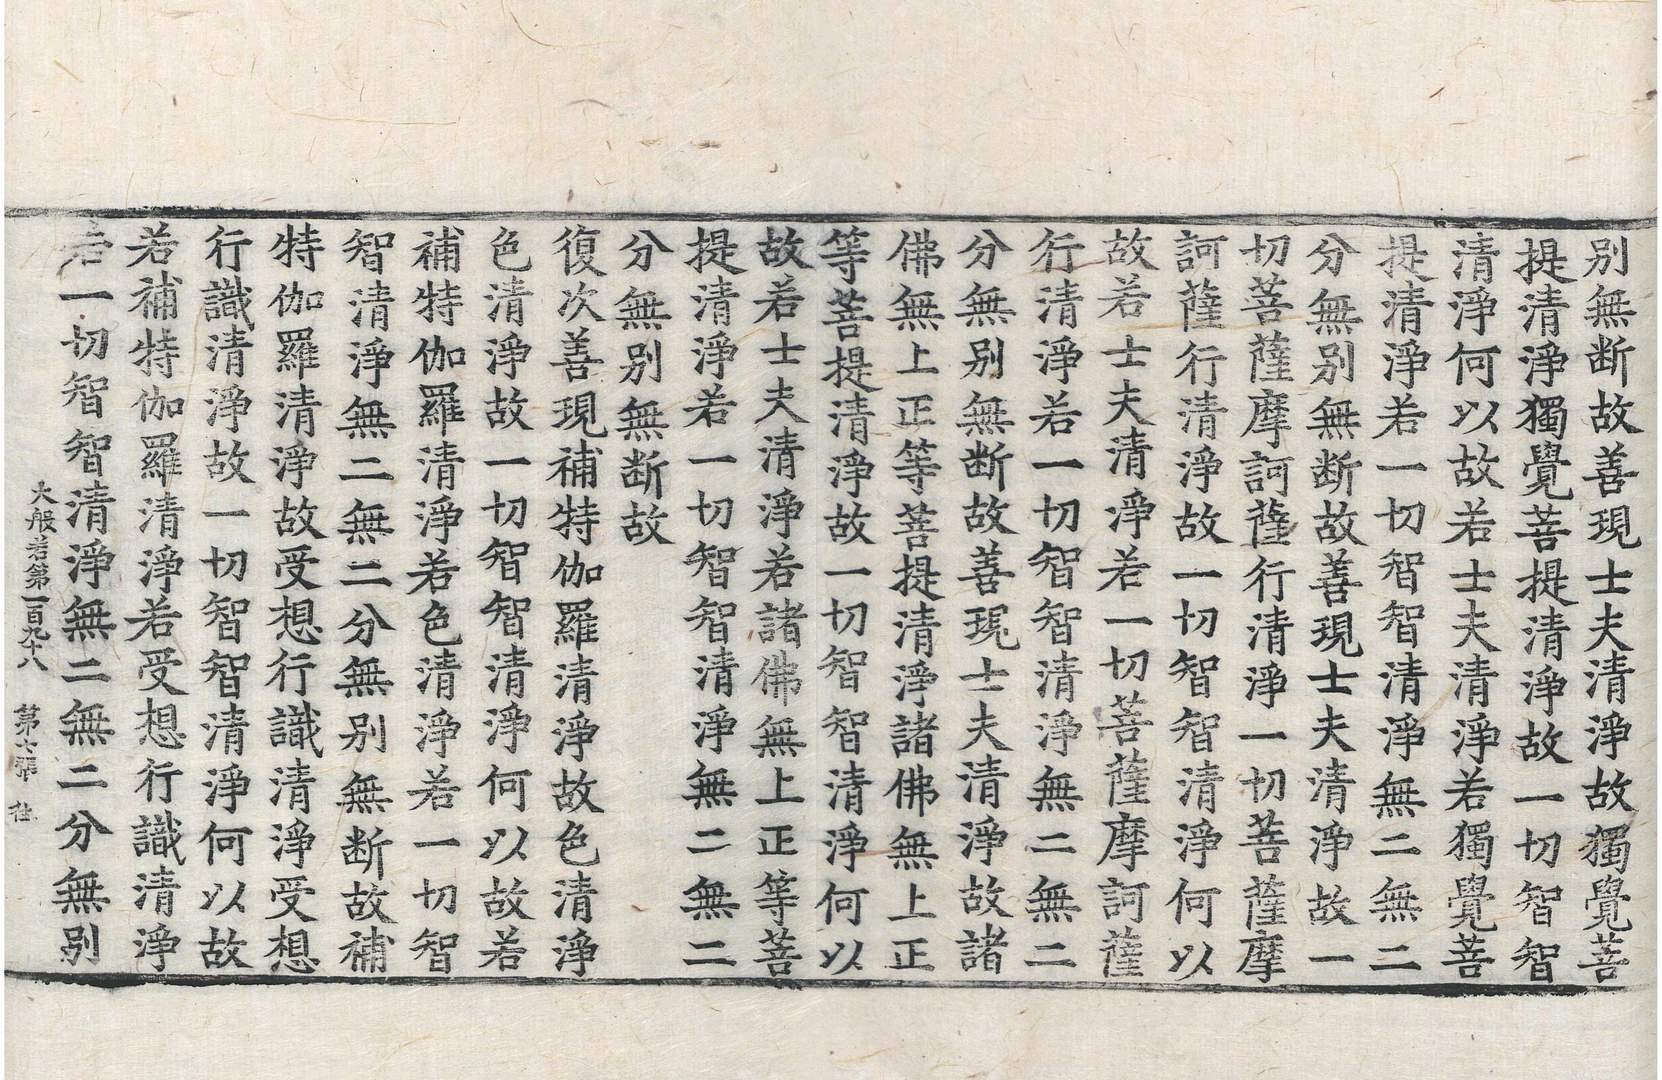 别無断故善現士夫清淨故獨覺菩
提清淨獨覺菩提清淨故一切智智
清淨何以故若士夫清淨若獨覺菩
提清淨若一切智智清淨無二無二
分無别無断故善現士夫清淨故一
切菩薩摩訶薩行清淨一切菩薩摩
訶薩行清淨故一切智智清淨何以
故若士夫清淨若一切菩薩摩訶薩
行清淨若一切智智清淨無二無二
分無别無断故善現士夫清淨故諸
佛無上正等菩提清淨諸佛無上正
等菩提清淨故一切智智清淨何以
故若士夫清淨若諸佛無上正等菩
提清淨若一切智智清淨無二無二
分無别無断故
復次善現補特伽羅清淨故色清淨
色清淨故一切智智清淨何以故若
補特伽羅清淨若色清淨若一切智
智清淨無二無二分無别無断故補
特伽羅清淨故受想行識清淨受想
行識清淨故一切智智清淨何以故
若補特伽羅清淨若受想行識清淨
若一切智智清淨無二無二分無别
大般若第一百九十八 第六張